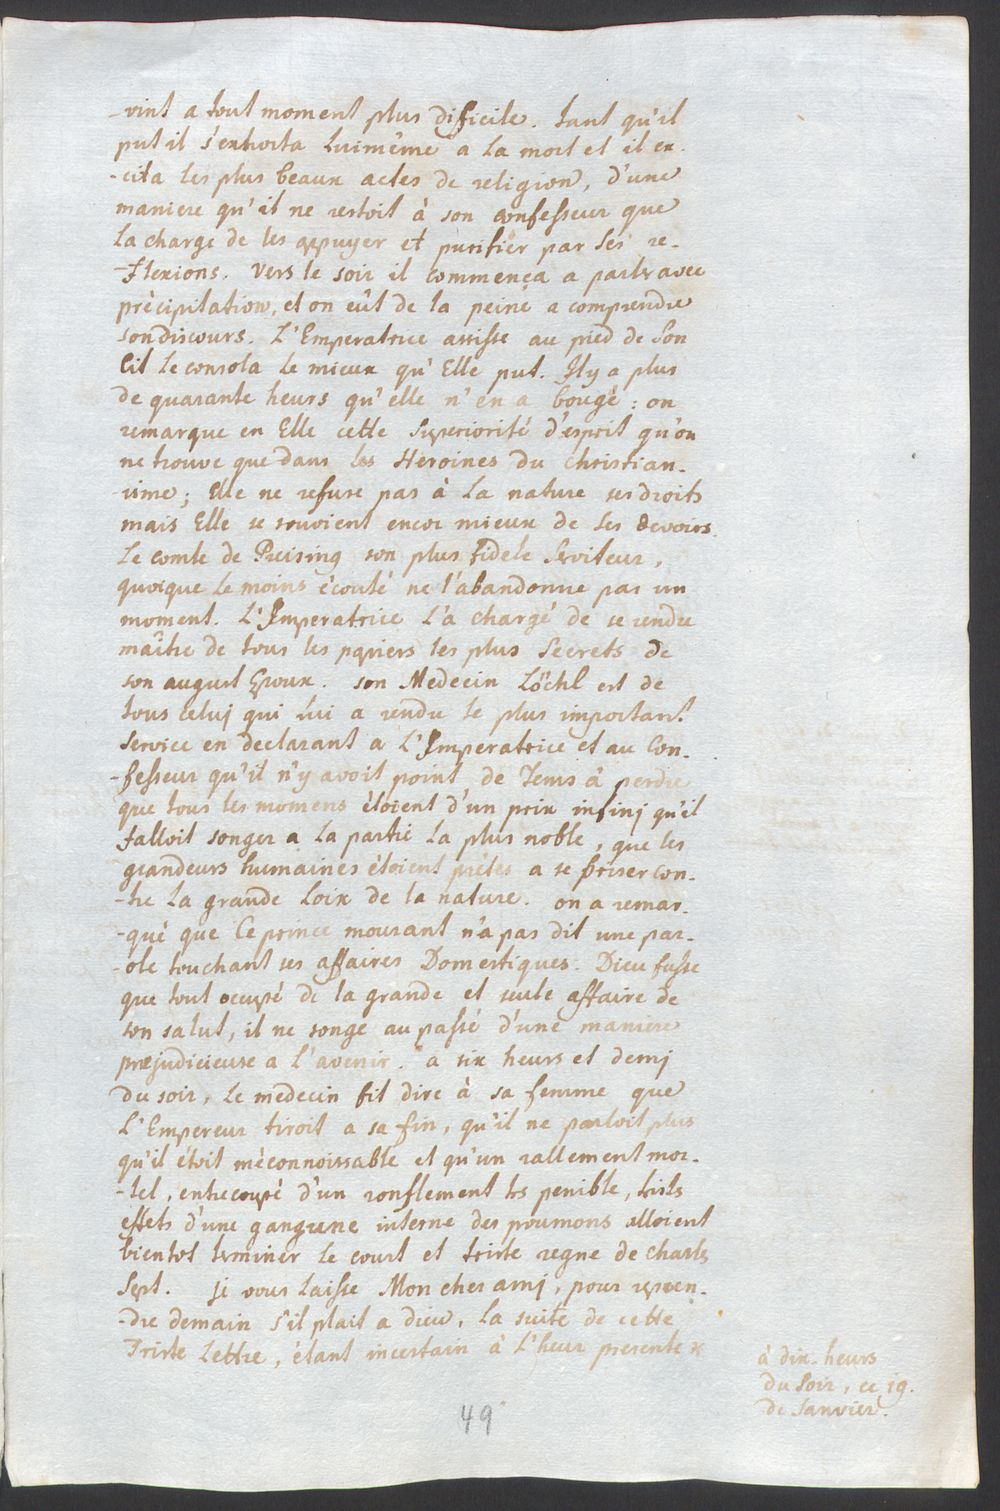 -vint a tout moment plus dificile. tant qu'il
put il s'exhorta luimême a la mort et il ex-
-cita les plus beaux actes de religion, d'une
maniere qu'il ne restoit à son confesseur que
la charge de les apuyer et purifier par ses re-
-flexions. vers le soir il commença a parler avec
précipitation, et on eût de la peine a comprendre
son discours. L'Emperatrice assisse au pied de son
lit le consola le mieux qu'Elle put. Il y a plus
de quarante heurs qu'elle n'en a bougé: on
remarque en Elle cette superiorité d'esprit qu'on
ne trouve que dans les Heroines du christian-
-isme; Elle ne refuse pas à la nature ses droits
mais Elle se souvient encor mieux de ses devoirs.
Le comte de Preising son plus fidele serviteur,
quoique le moins écouté ne l'abandonne pas un
moment. L'Imperatrice l'a chargé de se rendre
maître de tous les papiers les plus secrets de
son august Epoux. son Medecin Löchl est de
tous celuj qui lui a rendu le plus important
service en declarant a L'Imperatrice et au con-
-fesseur qu'il n'y avoit point de Tems à perdre
que tous les momens étoient d'un prix infinj qu'il
falloit songer a la partie la plus noble, que les
grandeurs humaines étoient prêtes a se briser con-
-tre la grande Loix de la nature. on a remar-
-qué que Ce prince mourant n'a pas dit une par-
-ole touchant ses affaires Domestiques. Dieu fasse
que tout ocupé de la grande et seule affaire de
son salut, il ne songe au passé d'une maniere
prejudicieuse a l'avenir. à six heurs et demj
du soir, le medecin fit dire à sa femme que
L'Empereur tiroit a sa fin, qu'il ne parloit plus
qu'il étoit méconnoissable et qu'un rallement mor-
-tel, entrecoupé d'un ronflement tres penible, trists
effets d'une gangrene interne des poumons alloient
bientot terminer le court et triste regne de charle
Sept. je vous laisse Mon cher amj, pour repren-
-dre demain s'il plait a dieu, la suite de cette
Triste Lettre, étant incertain à l'heur presente x
à dix heurs
du soir, ce 19.
de Janvier.
49